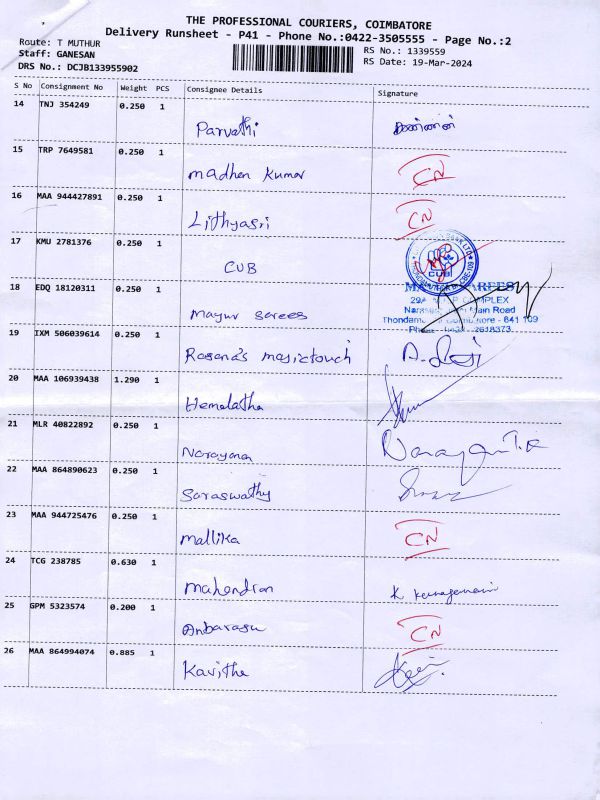 THE PROFESSIONAL COURIERS, COIMBATORE
Delivery Runsheet - P41 - Phone No.:0422-3505555 - Page No.:2
Route: T MUTHUR
Staff: GANESAN
DRS No.: DCJB133955902
RS No.: 1339559
RS Date: 19-Mar-2024
S No Consignment No Weight PCS Consignee Details Signature
14 TNJ 354249 0.250 1 Parvathi
15 TRP 7649581 0.250 1 Madhan Kumar CN
16 MAA 944427891 0.250 1 Lithyasri CN
17 KMU 2781376 0.250 1 CUB CUB
18 EDQ 18120311 0.250 1 Mayur sarees
COMPLEX
Main Road
641 109
2618373
19 IXM 506039614 0.250 1 Rasana's magictouch
20 MAA 106939438 1.290 1 Hemalatha
21 MLR 40822892 0.250 1 Narayanan Narayanan T.K
22 MAA 864890623 0.250 1 Saraswathy
23 MAA 944725476 0.250 1 Mallika CN
24 TCG 238785 0.630 1 Mahendran
25 GPM 5323574 0.200 1 Anbarasu CN
26 MAA 864994074 0.885 1 Kavitha